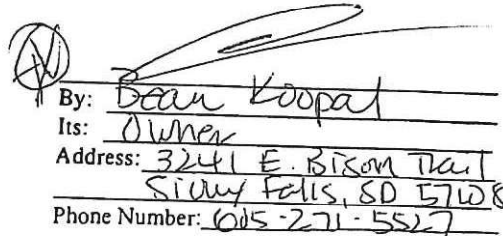 By: Dean Koopal
Its: Owner
Address: 3241 E. Bison Trail
Sioux Falls, SD 57108
Phone Number: 605-271-5527